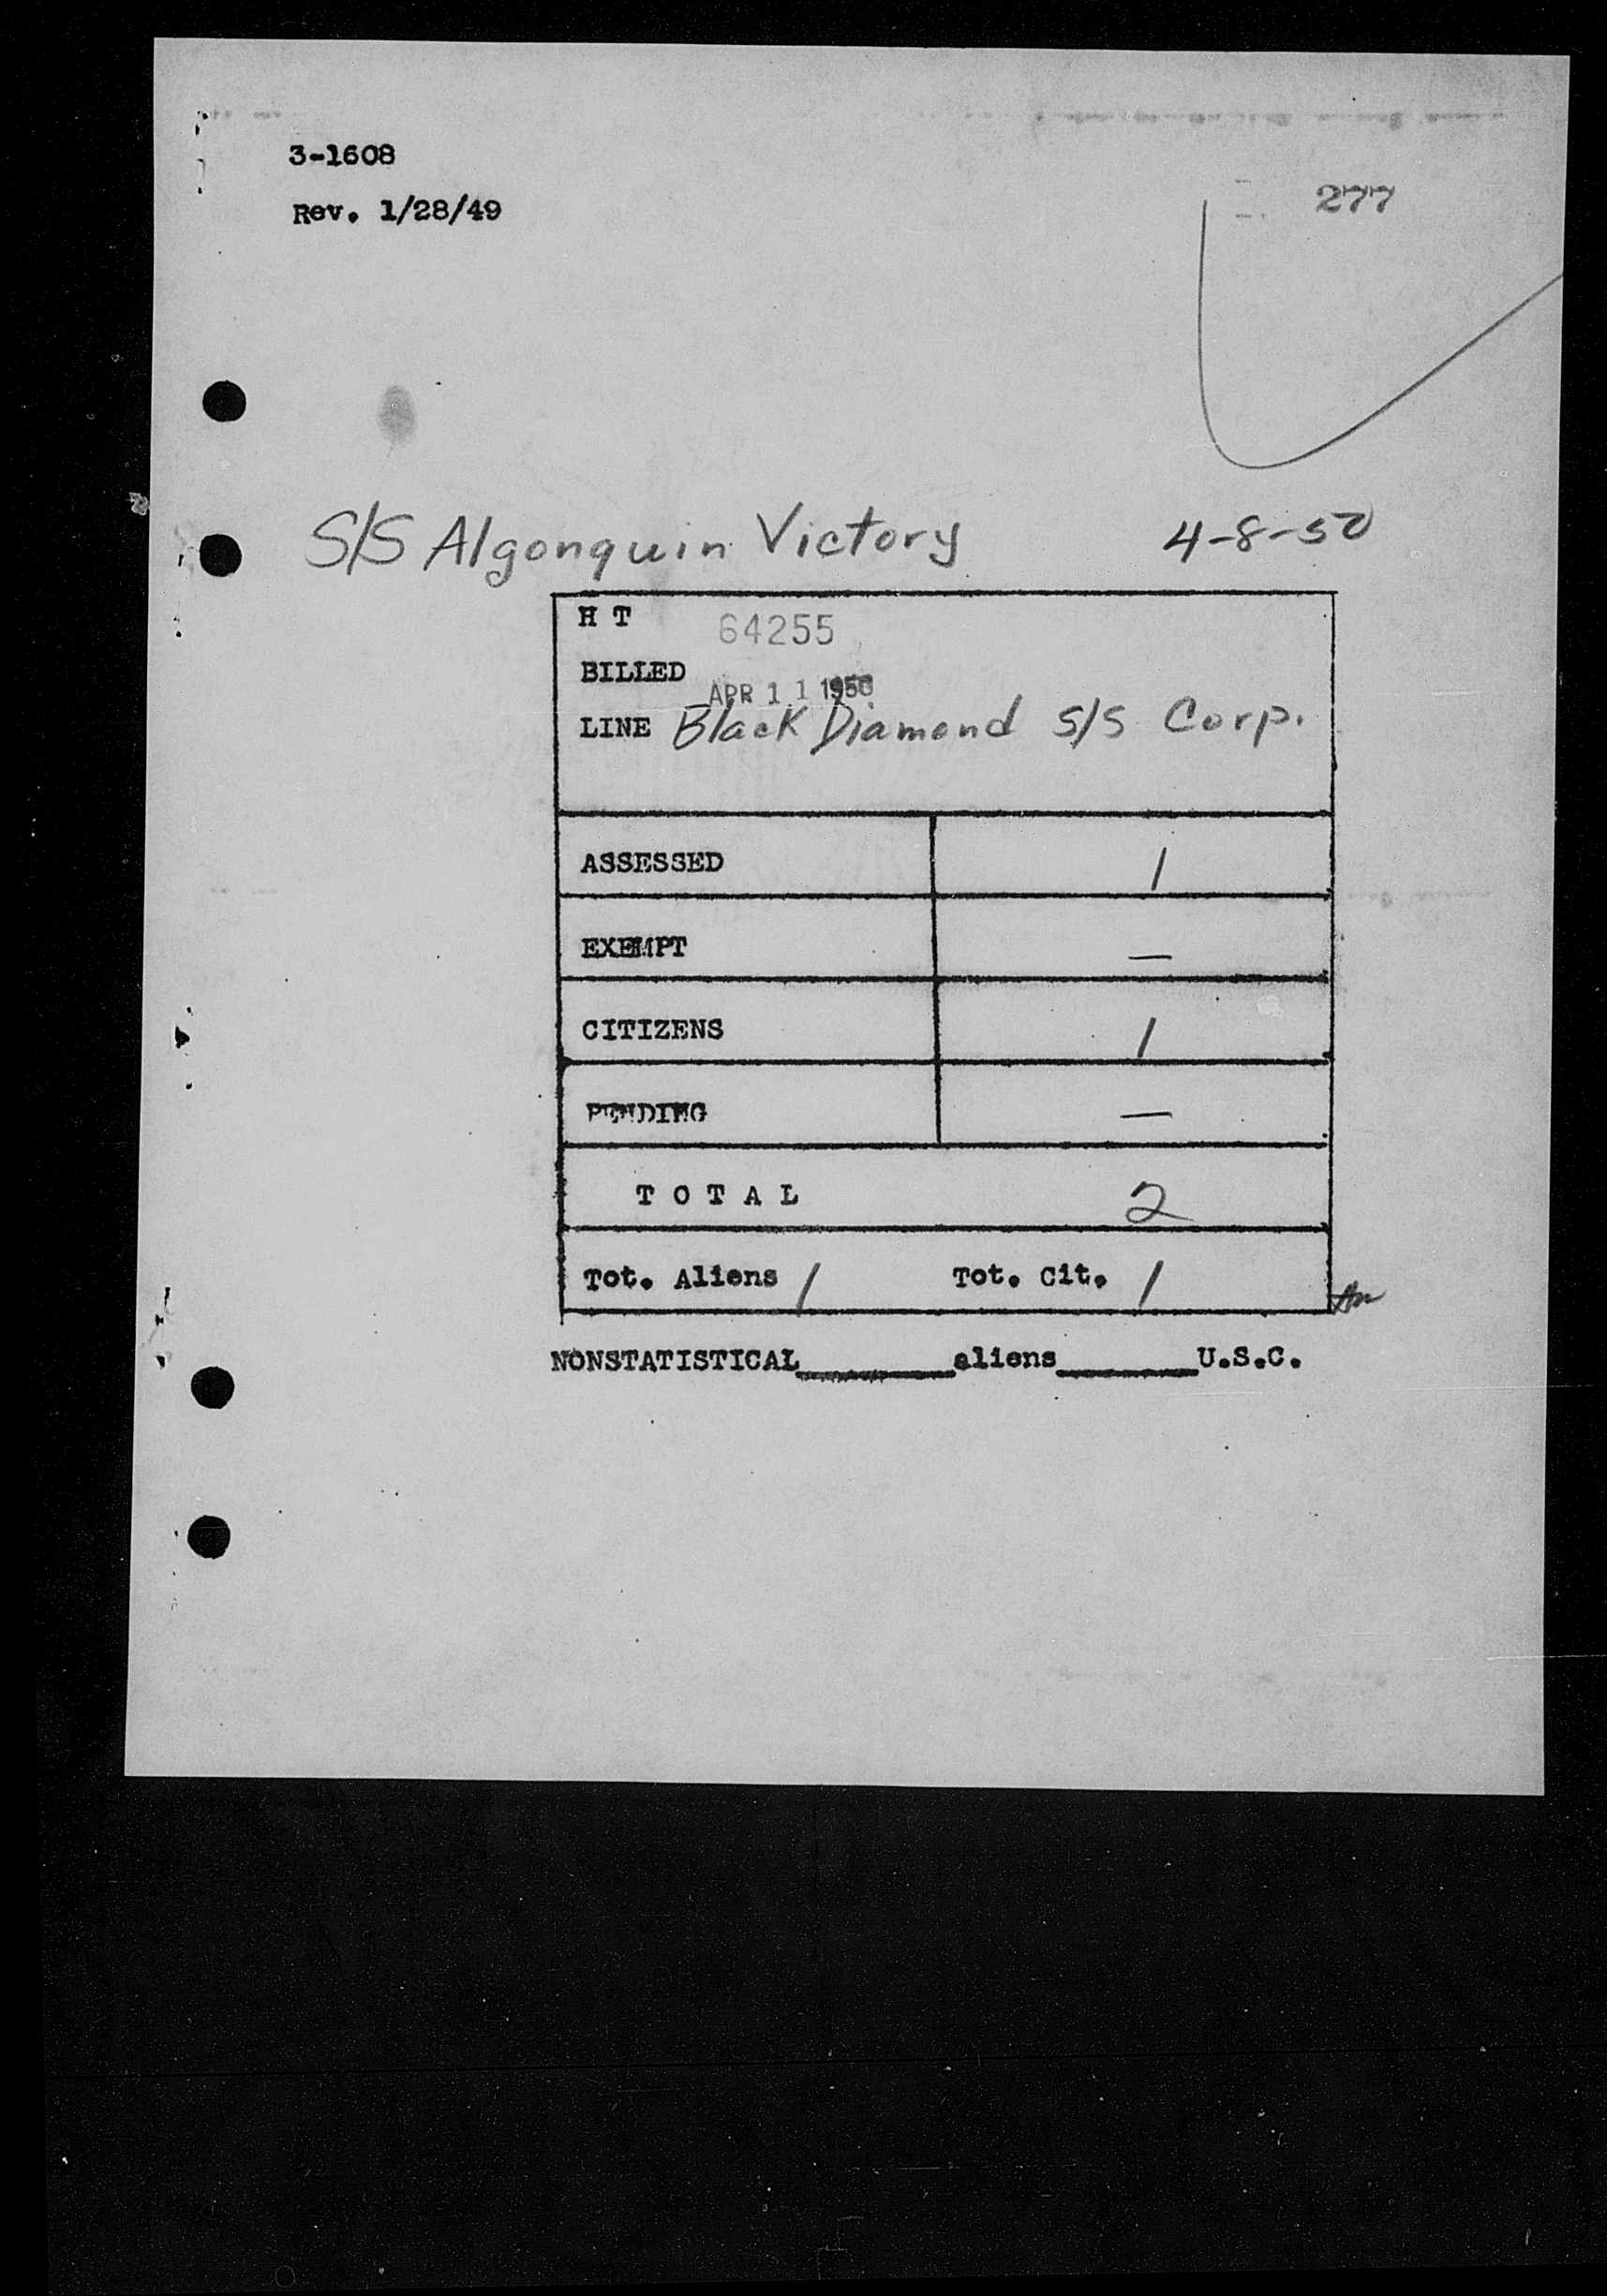 3-1608
277
Rev. 1/28/49
S/S Algonquin Victory 4-8-50
H T 64255
BILLED APR 11 1950
LINE Black Diamond S/S Corp.
ASSESSED 1
EXEMPT —
CITIZENS 1
PENDING —
T O T A L 2
Tot. Aliens 1 Tot. Cit. 1
NONSTATISTICAL________aliens________U.S.C.